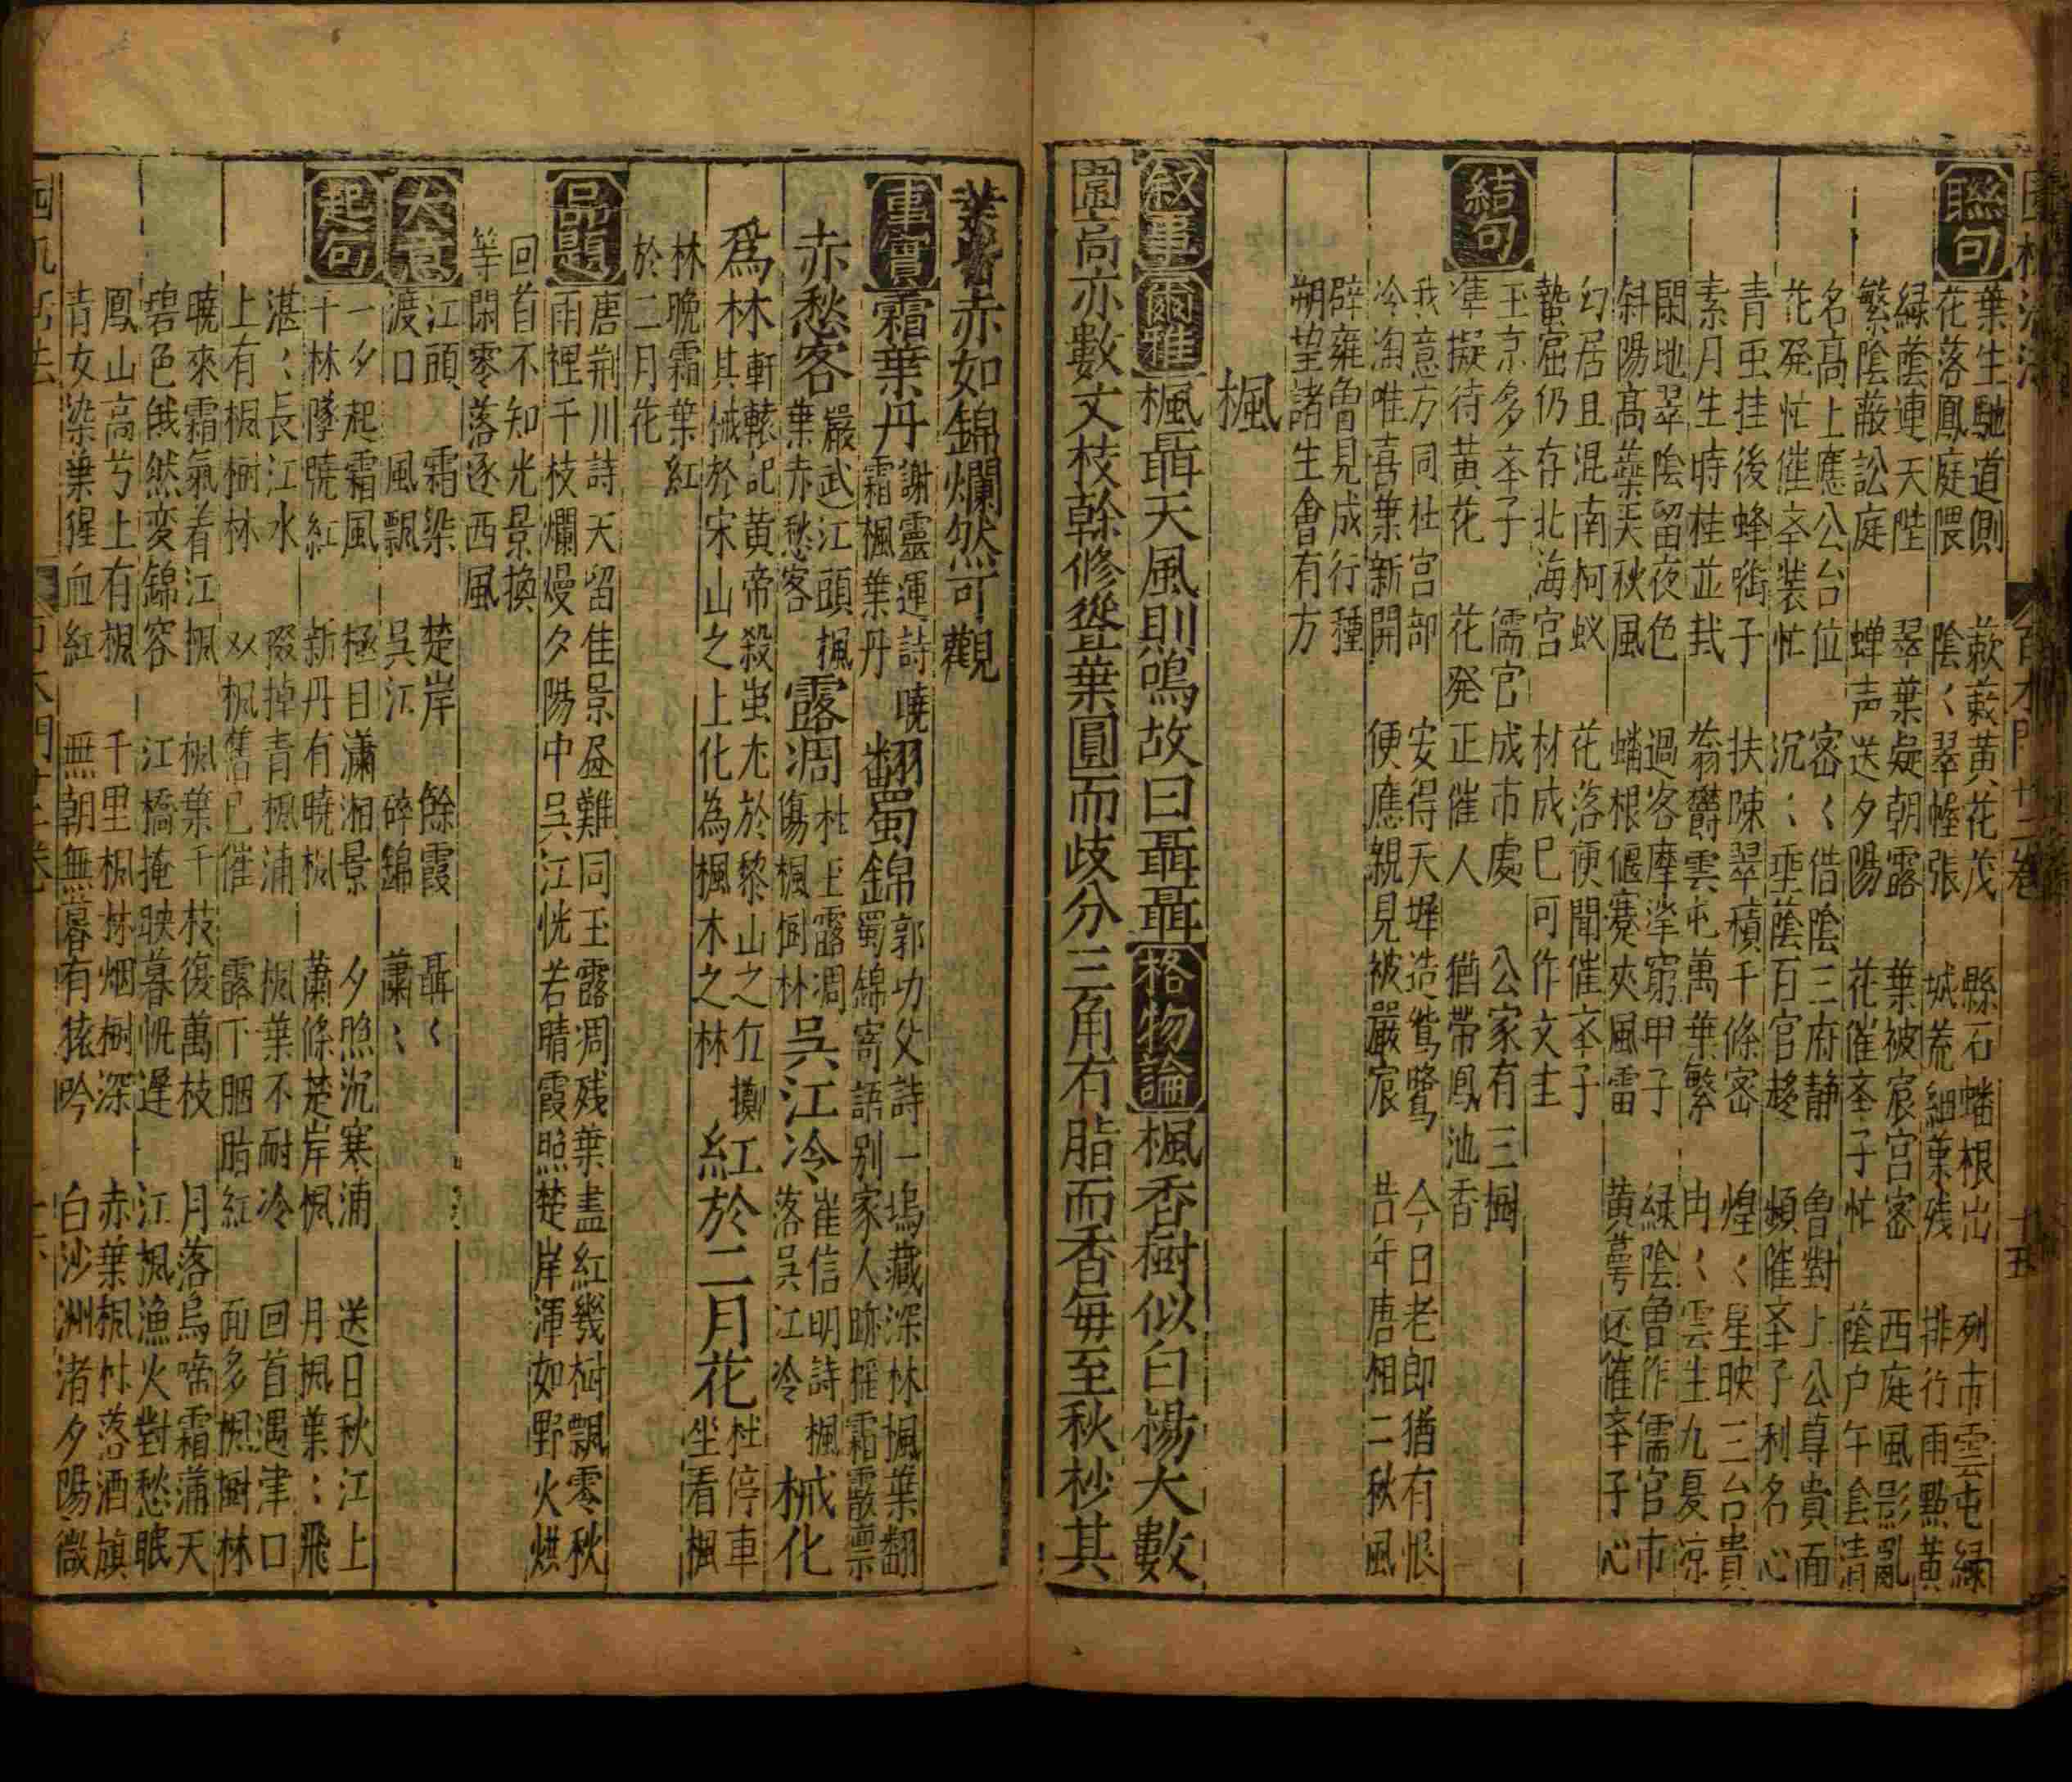 聯句
葉生馳道側 蔌蔌黃花茂 縣石蟠根出 列市雲屯綠
花落鳳庭隈 陰〻翠幄張 城荒細葉殘 排行雨點黃
綠蔭連天陛 翠葉凝朝露 葉被宸宮密 西庭風影亂
繁陰蔽訟庭 蝉声送夕陽 花催夲子忙 蔭户午陰清
名高上應公台位 密〻借陰三府静 魯對上公尊貴面
花発忙催夲装忙 沉〻垂蔭百官趍 頻催夲子利名心
青虫挂後蜂㗸子 扶疎翠積千條密 煌〻星映三台貴
素月生時桂並㦸 蓊欝雲屯萬葉繁 冉〻雲生九夏凉
閑地翠陰留夜色 過客摩挲窮甲子 緑陰魯作儒官市
斜陽高蘂送秋風 蟠根偃蹇夾風雷 黄蕚还催夲子心
幻居且混南柯蚁 花落便聞催夲子
蟄屈仍存北海宮 材成已可作文圭
結句
玉京多夲子 儒官成市處 公家有三樹
準擬待黃花 花発正催人 猶帶鳳池香
我意方同杜宮部 安得天婢造鴛鷺 今日老郎猶有恨
冷淘唯喜葉新開 便應親見被嚴宸 昔年唐相二秋風
辟雍魯見成行種
朔望諸生會有方
楓
叙事 爾雅 楓聶天風則鳴故曰聶聶 格物論 楓香樹似白楊大數
圍高亦數丈枝幹修聳葉圓而歧分三角有脂而香毎至秋杪其
葉皆赤如錦爛然可觀
事實 霜葉丹 謝靈運詩曉霜楓葉丹 翻蜀錦 郭功父詩一塢藏深林楓葉翻蜀錦寄語别家人跡摧霜霰禀
赤愁客 嚴武江頭楓葉赤愁客 露凋 杜玉露凋傷楓樹林 吳江冷 崔信明詩楓落吳江冷 械化
爲林 軒轅記黃帝殺蚩尤於黎山之丘擲其械於宋山之上化為楓木之林 紅於二月花 杜停車坐看楓
林晚霜葉紅於二月花
品題 唐荆川詩天留佳景昼難同玉露凋残葉盡紅幾樹飄零秋
雨裡千枝爛熳夕陽中吳江恍若晴霞照楚岸渾如野火烘
回首不知光景換
等閑零落逐西風
大意
江頭 霜染 楚岸 餘霞 聶〻
渡口 風飄 吳江 碎錦 蕭〻
起句
一夕起霜風 極目瀟湘景 夕照沉寒浦 送日秋江上
千林墜曉紅 新丹有曉楓 蕭條楚岸楓 月楓葉〻飛
湛〻長江水 掇掉青楓浦 楓葉不耐冷 回首遇津口
上有楓樹林 双楓舊已催 露下胭脂紅 面多楓樹林
曉來霜氣着江楓 楓葉千枝復萬枝 月落烏啼霜滿天
碧色俄然变錦容 江橋掩映暮帆遲 江楓漁火對愁眠
鳳山高兮上有楓 千里楓林烟樹深 赤葉楓村落酒旗
青女染葉猩血紅 無朝無暮有猿吟 白沙洲渚夕陽微